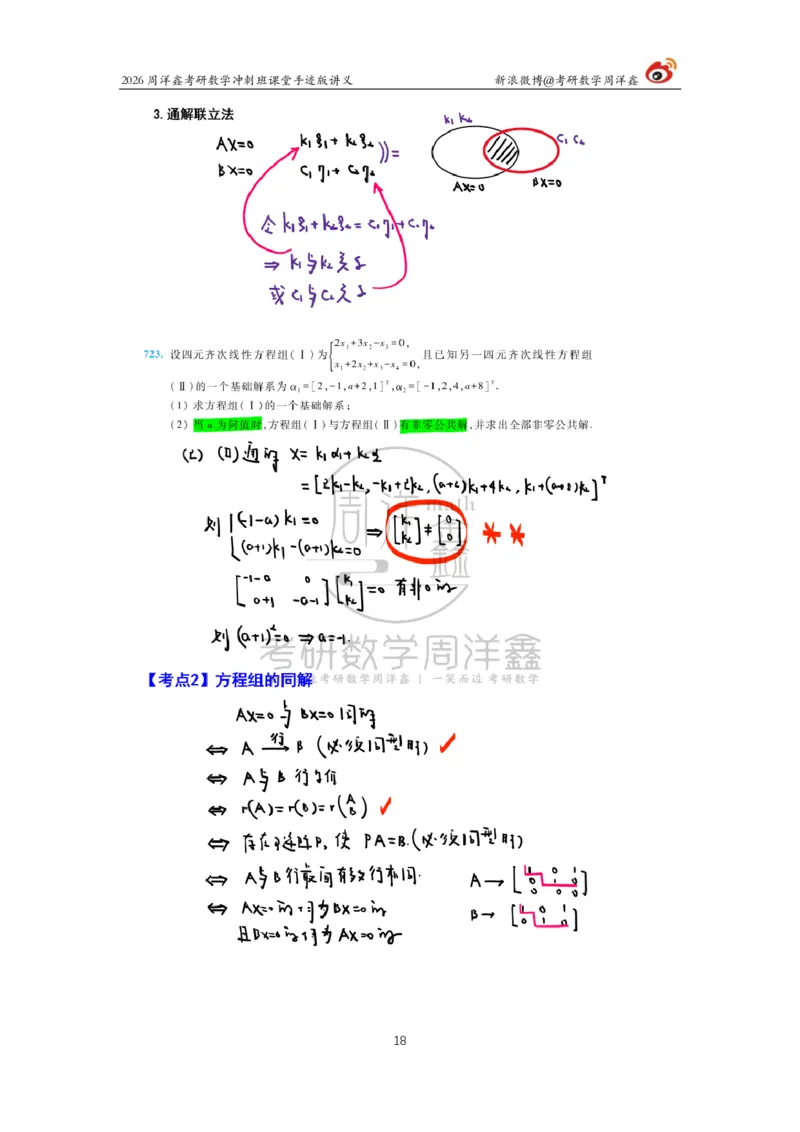 2026周洋鑫考研数学冲刺班课堂手迹版讲义 新浪微博@考研数学周洋鑫
3. 通解联立法
k₁ k₂
AX=0 k₁ξ₁+k₂ξ₂
C₁ C₂
BX=0 C₁η₁+C₂η₂
AX=0 BX=0
令 k₁ξ₁+k₂ξ₂=C₁η₁+C₂η₂
⇒ k₁与k₂关系
或 C₁与C₂关系
723. 设四元齐次线性方程组(Ⅰ)为 { 2x₁+3x₂-x₃=0, x₁+2x₂+x₃-x₄=0, 且已知另一四元齐次线性方程组
(Ⅱ)的一个基础解系为 α₁=[2,-1,a+2,1]ᵀ,α₂=[-1,2,4,a+8]ᵀ.
(1) 求方程组(Ⅰ)的一个基础解系;
(2) 当 a 为何值时,方程组(Ⅰ)与方程组(Ⅱ)有非零公共解,并求出全部非零公共解.
(2) (Ⅱ)通解 X= k₁α₁+k₂
=[2k₁-k₂, -k₁+2k₂, (a+2)k₁+4k₂, k₁+(a+8)k₂]ᵀ
则 { (-1-a)k₁=0
(a+1)k₁-(a+1)k₂=0
⇒ [k₁ k₂]≠[0 0]
[-1-a 0
a+1 -a-1] [k₁ k₂]=0 有非0解
则 (a+1)²=0 ⇒ a=-1.
周洋鑫
math
考研数学周洋鑫
考研数学周洋鑫 | 一笑而过 考研数学
【考点2】方程组的同解
AX=0 与 BX=0 同解
⇔ A 行→ B (必须同型时) ✓
⇔ A与B 行等价
⇔ r(A)=r(B)=r(A B) ✓
⇔ 存在可逆阵P, 使 PA=B.(必须同型时)
⇔ A与B行最简有效行相同.
A→ [1 0 1
0 1 0
0 0 0]
⇔ AX=0解均为BX=0解
B→ [1 0 1
0 1 0]
且BX=0解均为AX=0解
18